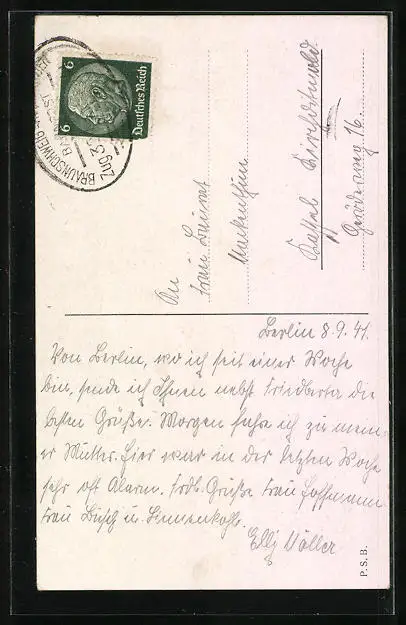 6 6
Deutsches Reich
BRAUNSCHWEIG
BAHNPOST
Zug
An
Frau Baurat
Kassel Kirchditmold
16.
Berlin 8.9.41.
Von Berlin, wo ich seit einer Woche
bin, sende ich Ihnen nebst Friedberta die
besten Grüße. Morgen fahre ich zu mein-
er Mutter. Hier war in der letzten Woche
sehr oft Alarm. Frdl. Grüße Frau Hoffmann
Frau Busch u. Binnenkohl.
Elly Völler
P.S.B.